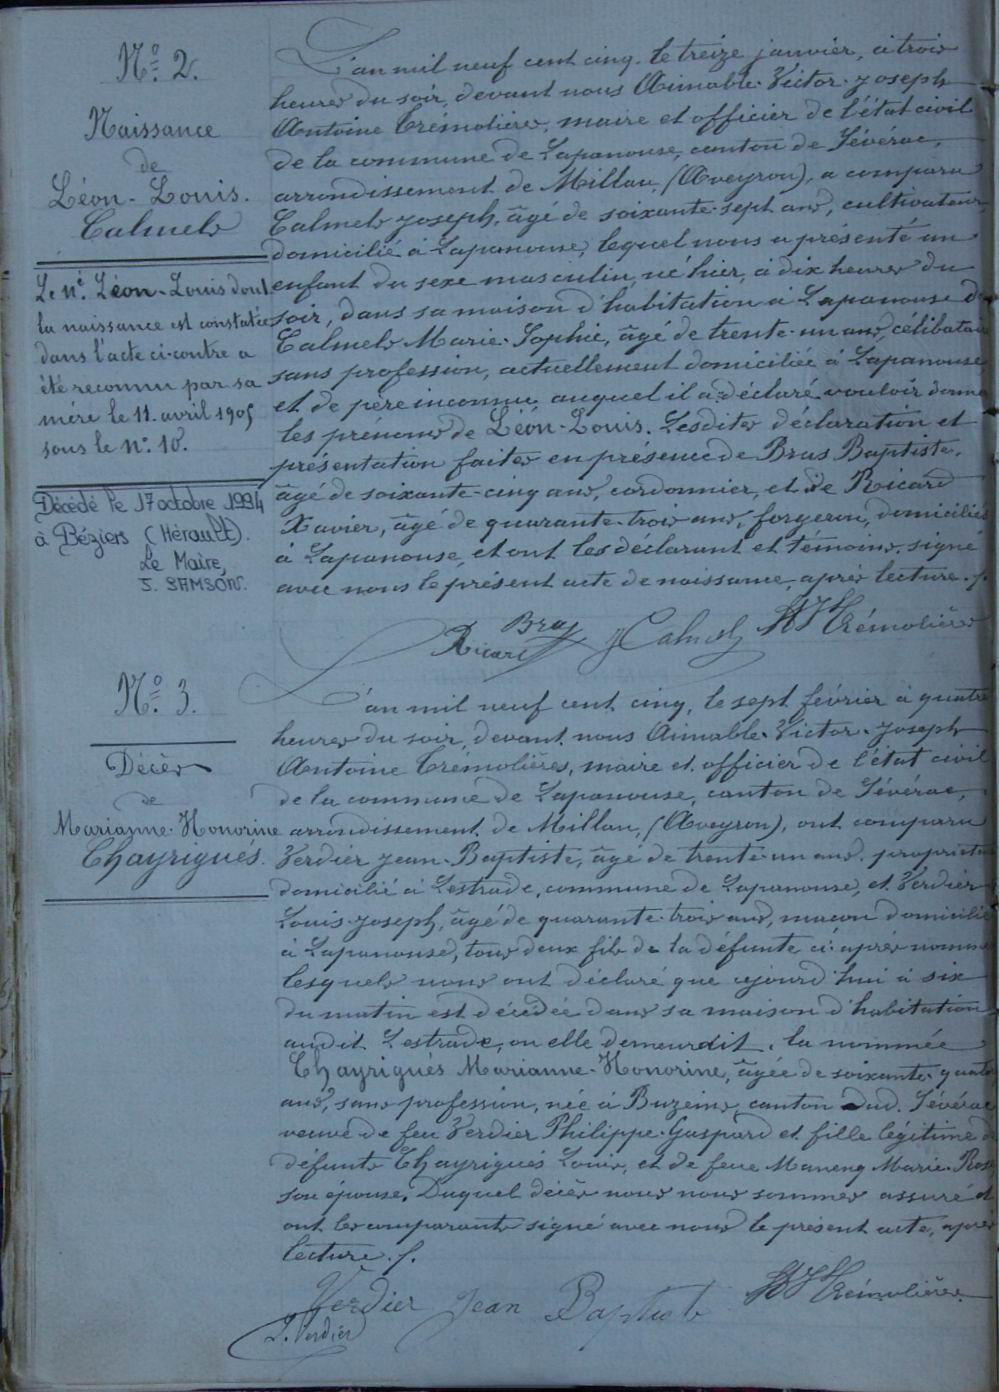 N° 2.
Naissance
de
Léon-Louis.
Calmels
Le né Léon-Louis dont
la naissance est constatée
dans l'acte ci-contre a
été reconnu par sa
mère le 11 avril 1905
sous le N° 10.
Décédé le 17 octobre 1994
à Béziers (Hérault).
Le Maire,
J. SAMSON.
L'an mil neuf cent cinq, le treize janvier, à trois
heures du soir, devant nous Aimable-Victor-Joseph
Antoine Trémolières, maire et officier de l'état civil
de la commune de Lapanouse, canton de Sévérac,
arrondissement de Millau, (Aveyron), a comparu
Calmels Joseph, âgé de soixante-sept ans, cultivateur,
domicilié à Lapanouse, lequel nous a présenté un
enfant du sexe masculin, né hier, à dix heures du
soir, dans sa maison d'habitation à Lapanouse de
Calmels Marie-Sophie, âgé de trente-un ans, célibataire
sans profession, actuellement domiciliée à Lapanouse
et de père inconnu auquel il a déclaré vouloir donne
les prénoms de Léon-Louis. Lesdites déclaration et
présentation faites en présence de Bras Baptiste,
âgé de soixante-cinq ans, cordonnier, et de Ricard
Xavier, âgé de quarante-trois ans, forgeron, domiciliés
à Lapanouse, et ont les déclarant et témoins, signé
avec nous le présent acte de naissance, après lecture./.
Bras
Ricard J Calmels AJ Trémolières
N° 3.
Décès
de
Marianne-Honorine
Chayriguès.
L'an mil neuf cent cinq, le sept février à quatre
heures du soir, devant nous Aimable-Victor-Joseph
Antoine Trémolières, maire et officier de l'état civil
de la commune de Lapanouse, canton de Sévérac,
arrondissement de Millau, (Aveyron), ont comparu
Verdier Jean-Baptiste, âgé de trente-un ans, propriétai
domicilié à Lestrade, commune de Lapanouse, et Verdier
Louis-Joseph, âgé de quarante-trois ans, maçon domicilié
à Lapanouse, tous deux fils de la défunte ci-après nommé
lesquels nous ont déclaré que aujourd'hui à six
du matin est décédée dans sa maison d'habitation
audit Lestrade, ou elle demeurait, la nommée
Chayriguès Marianne-Honorine, âgée de soixante-quato
ans, sans profession, née à Buzeins, canton dud. Sévérac
veuve de feu Verdier Philippe-Gaspard et fille légitime d
défunts Chayriguès Louis, et de feue Maneng Marie-Rose
son épouse. Duquel décès nous nous sommes assuré et
ont les comparants signé avec nous le présent acte, après
lecture./.
Verdier Jean Baptiste AJ Trémolières
J. Verdier